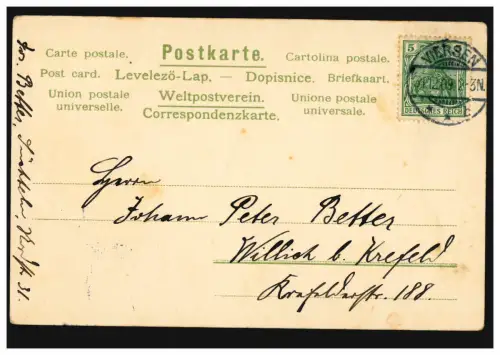 Postkarte.
Carte postale. Cartolina postale.
Post card. Levelező-Lap. — Dopisnice. Briefkaart.
Union postale universelle. Weltpostverein. Unione postale universale.
Correspondenzkarte.
5
DEUTSCHES REICH
VIERSEN
2-3N.
Herrn
Johann Peter Better
Willich b. Krefeld
Krefelderstr. 188.
31.